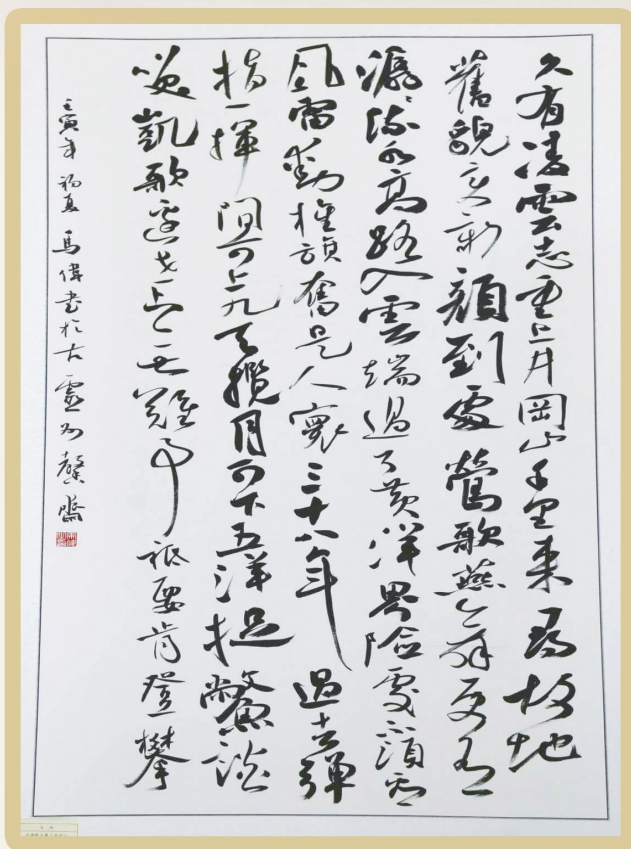 久有凌雲志重上井岡山千里來尋故地
舊貌變新顏到處鶯歌燕舞更有
潺〻流水高路入雲端過了黃洋界險處不須看
風雷動旌旗奮是人寰三十八年過去彈
指一揮間可上九天攬月可下五洋捉鱉談
笑凱歌還世上無難事祇要肯登攀
壬寅年初夏馬偉書於古靈州馨